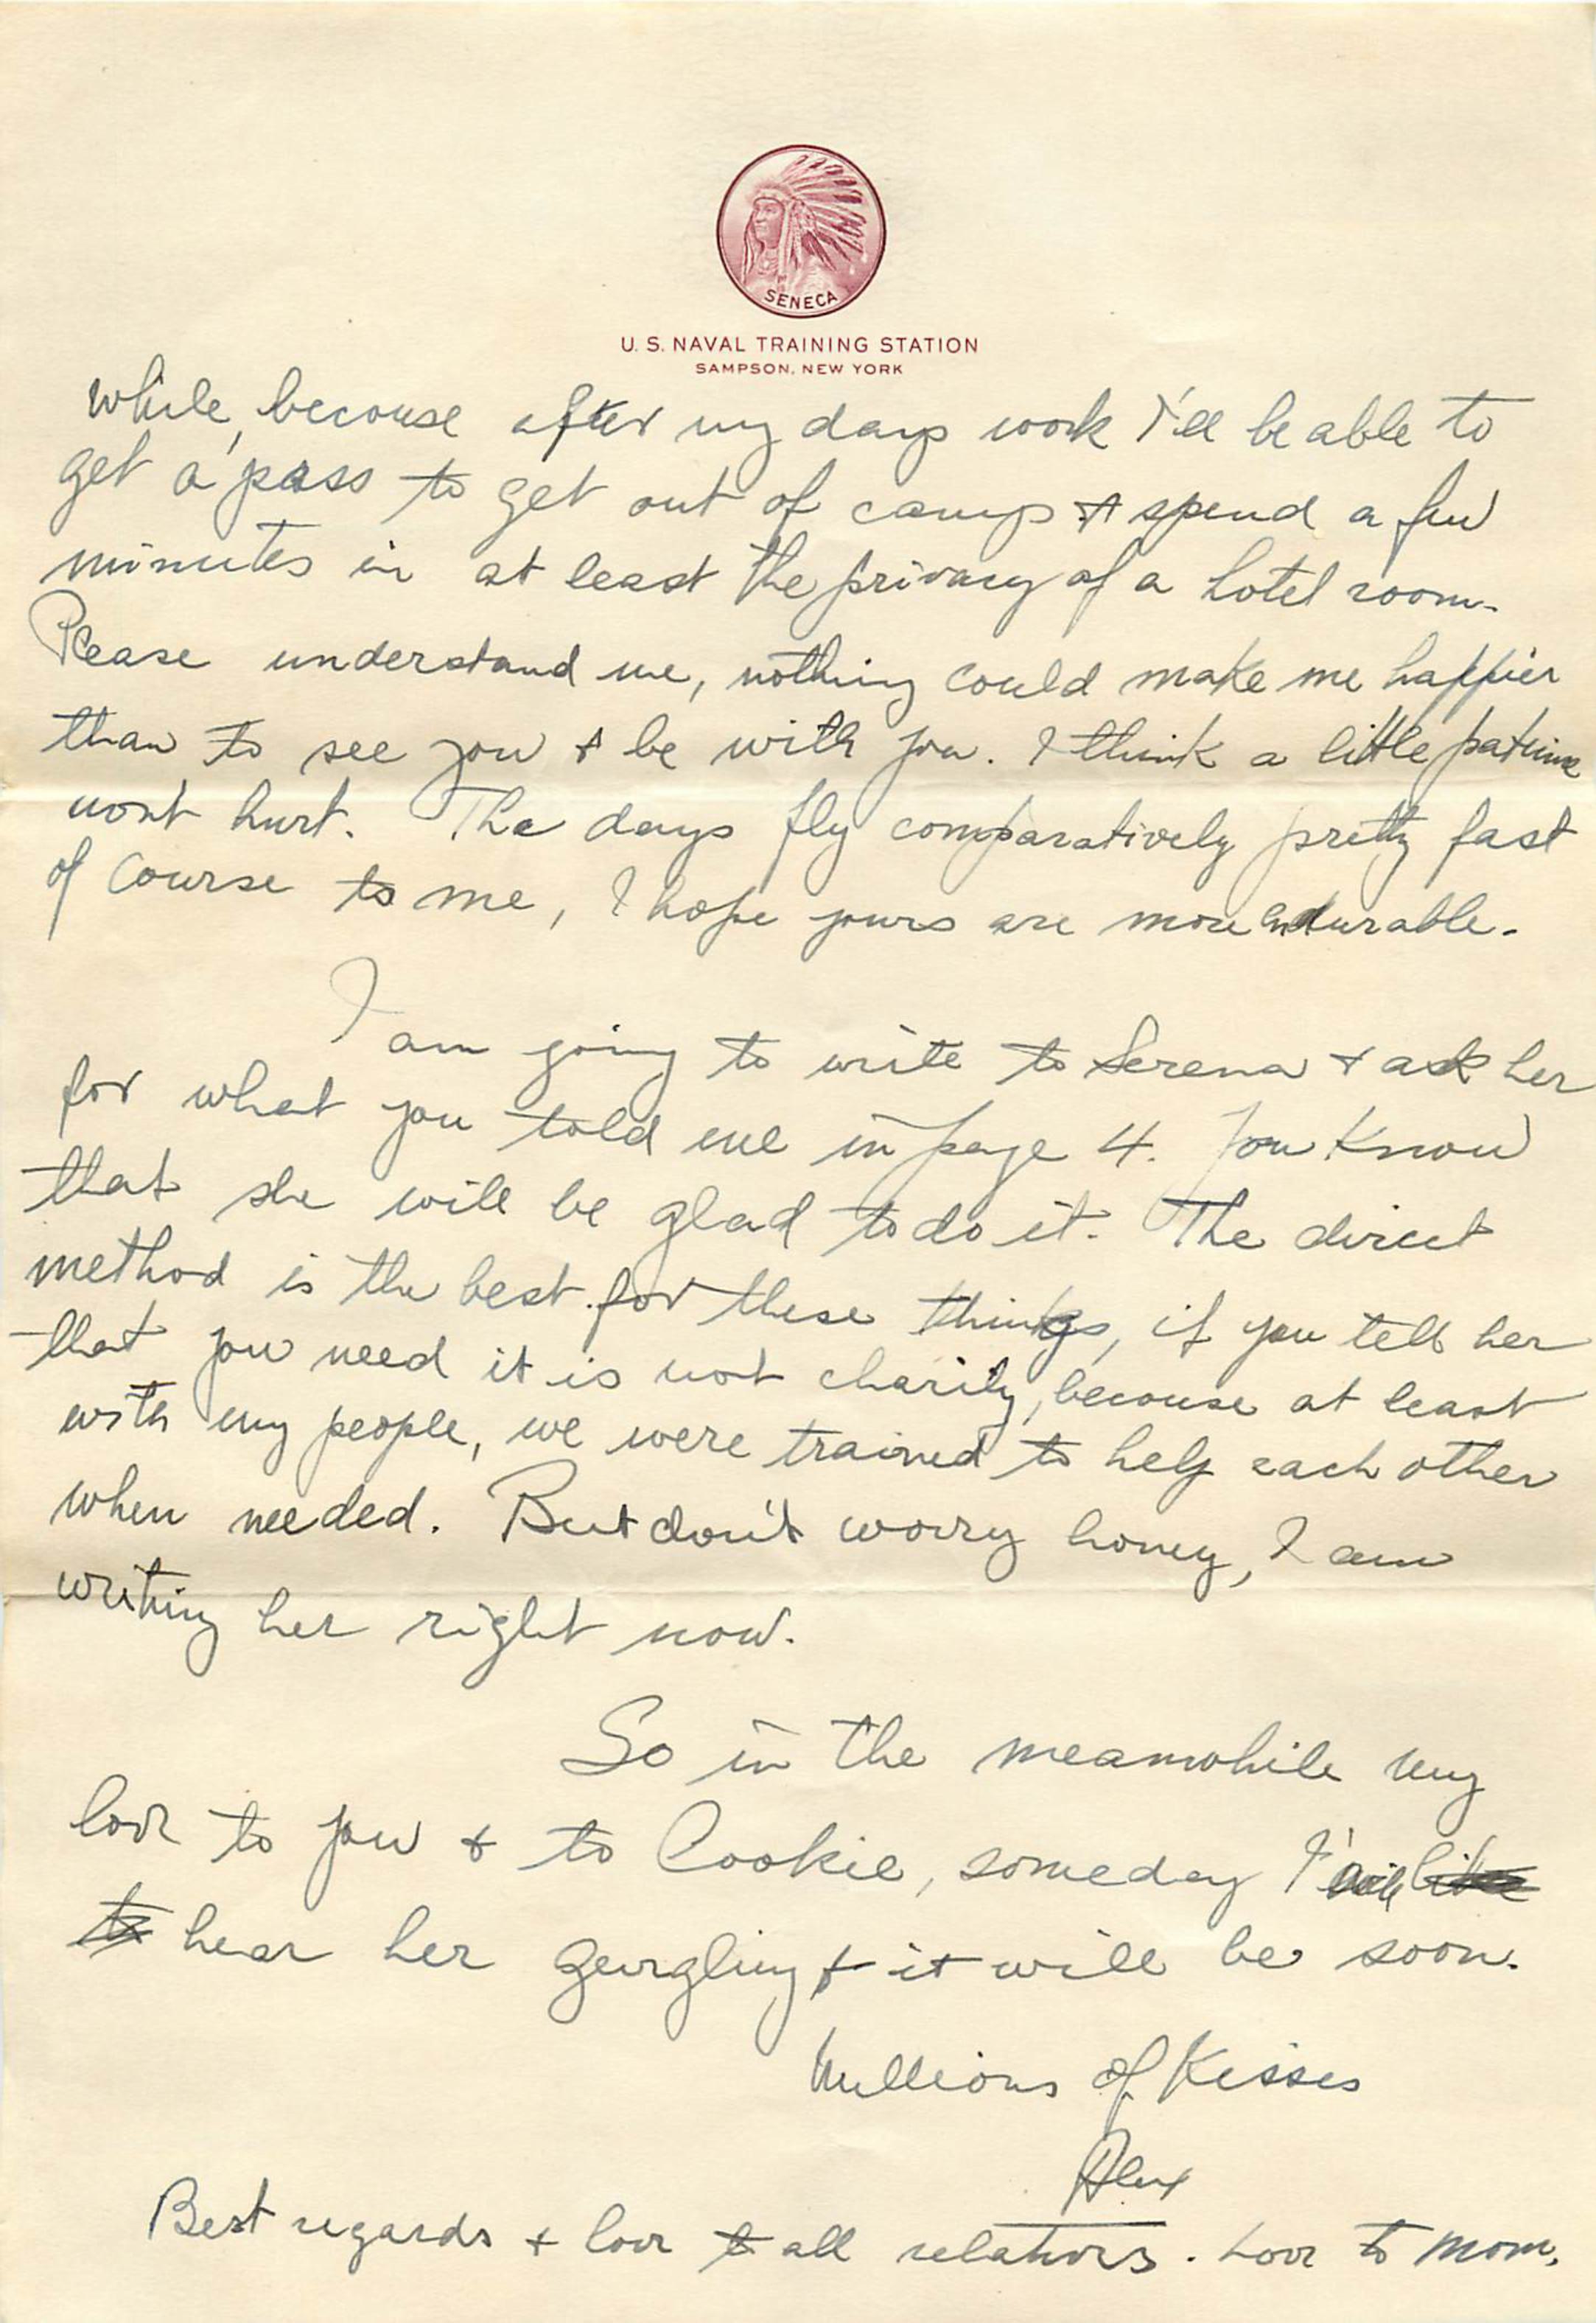 SENECA
U. S. NAVAL TRAINING STATION
SAMPSON, NEW YORK
while, because after my days work I'll be able to
get a pass to get out of camp & spend a few
minutes in at least the privacy of a hotel room.
Please understand me, nothing could make me happier
than to see you & be with you. I think a little patience
wont hurt. The days fly comparatively pretty fast
of course to me, I hope yours are more endurable.
I am going to write to Serena & ask her
for what you told me in page 4. You know
that she will be glad to do it. The direct
method is the best for these things, if you tell her
that you need it is not charity, because at least
with my people, we were trained to help each other
when needed. But don't worry honey, I am
writing her right now.
So in the meanwhile my
love to you & to Cookie, someday I'll like
to hear her gurgling & it will be soon.
Millions of Kisses
Alex
Best regards & love to all relatives. Love to Mom.